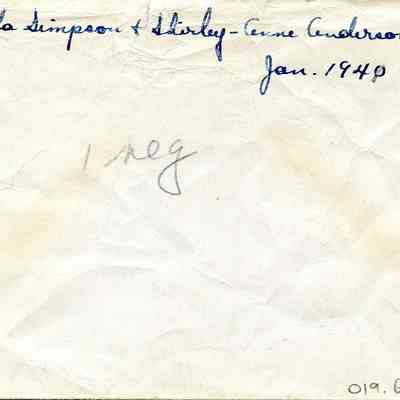 la Simpson & Shirley-Anne Anderson
Jan. 1940
1 neg
019.